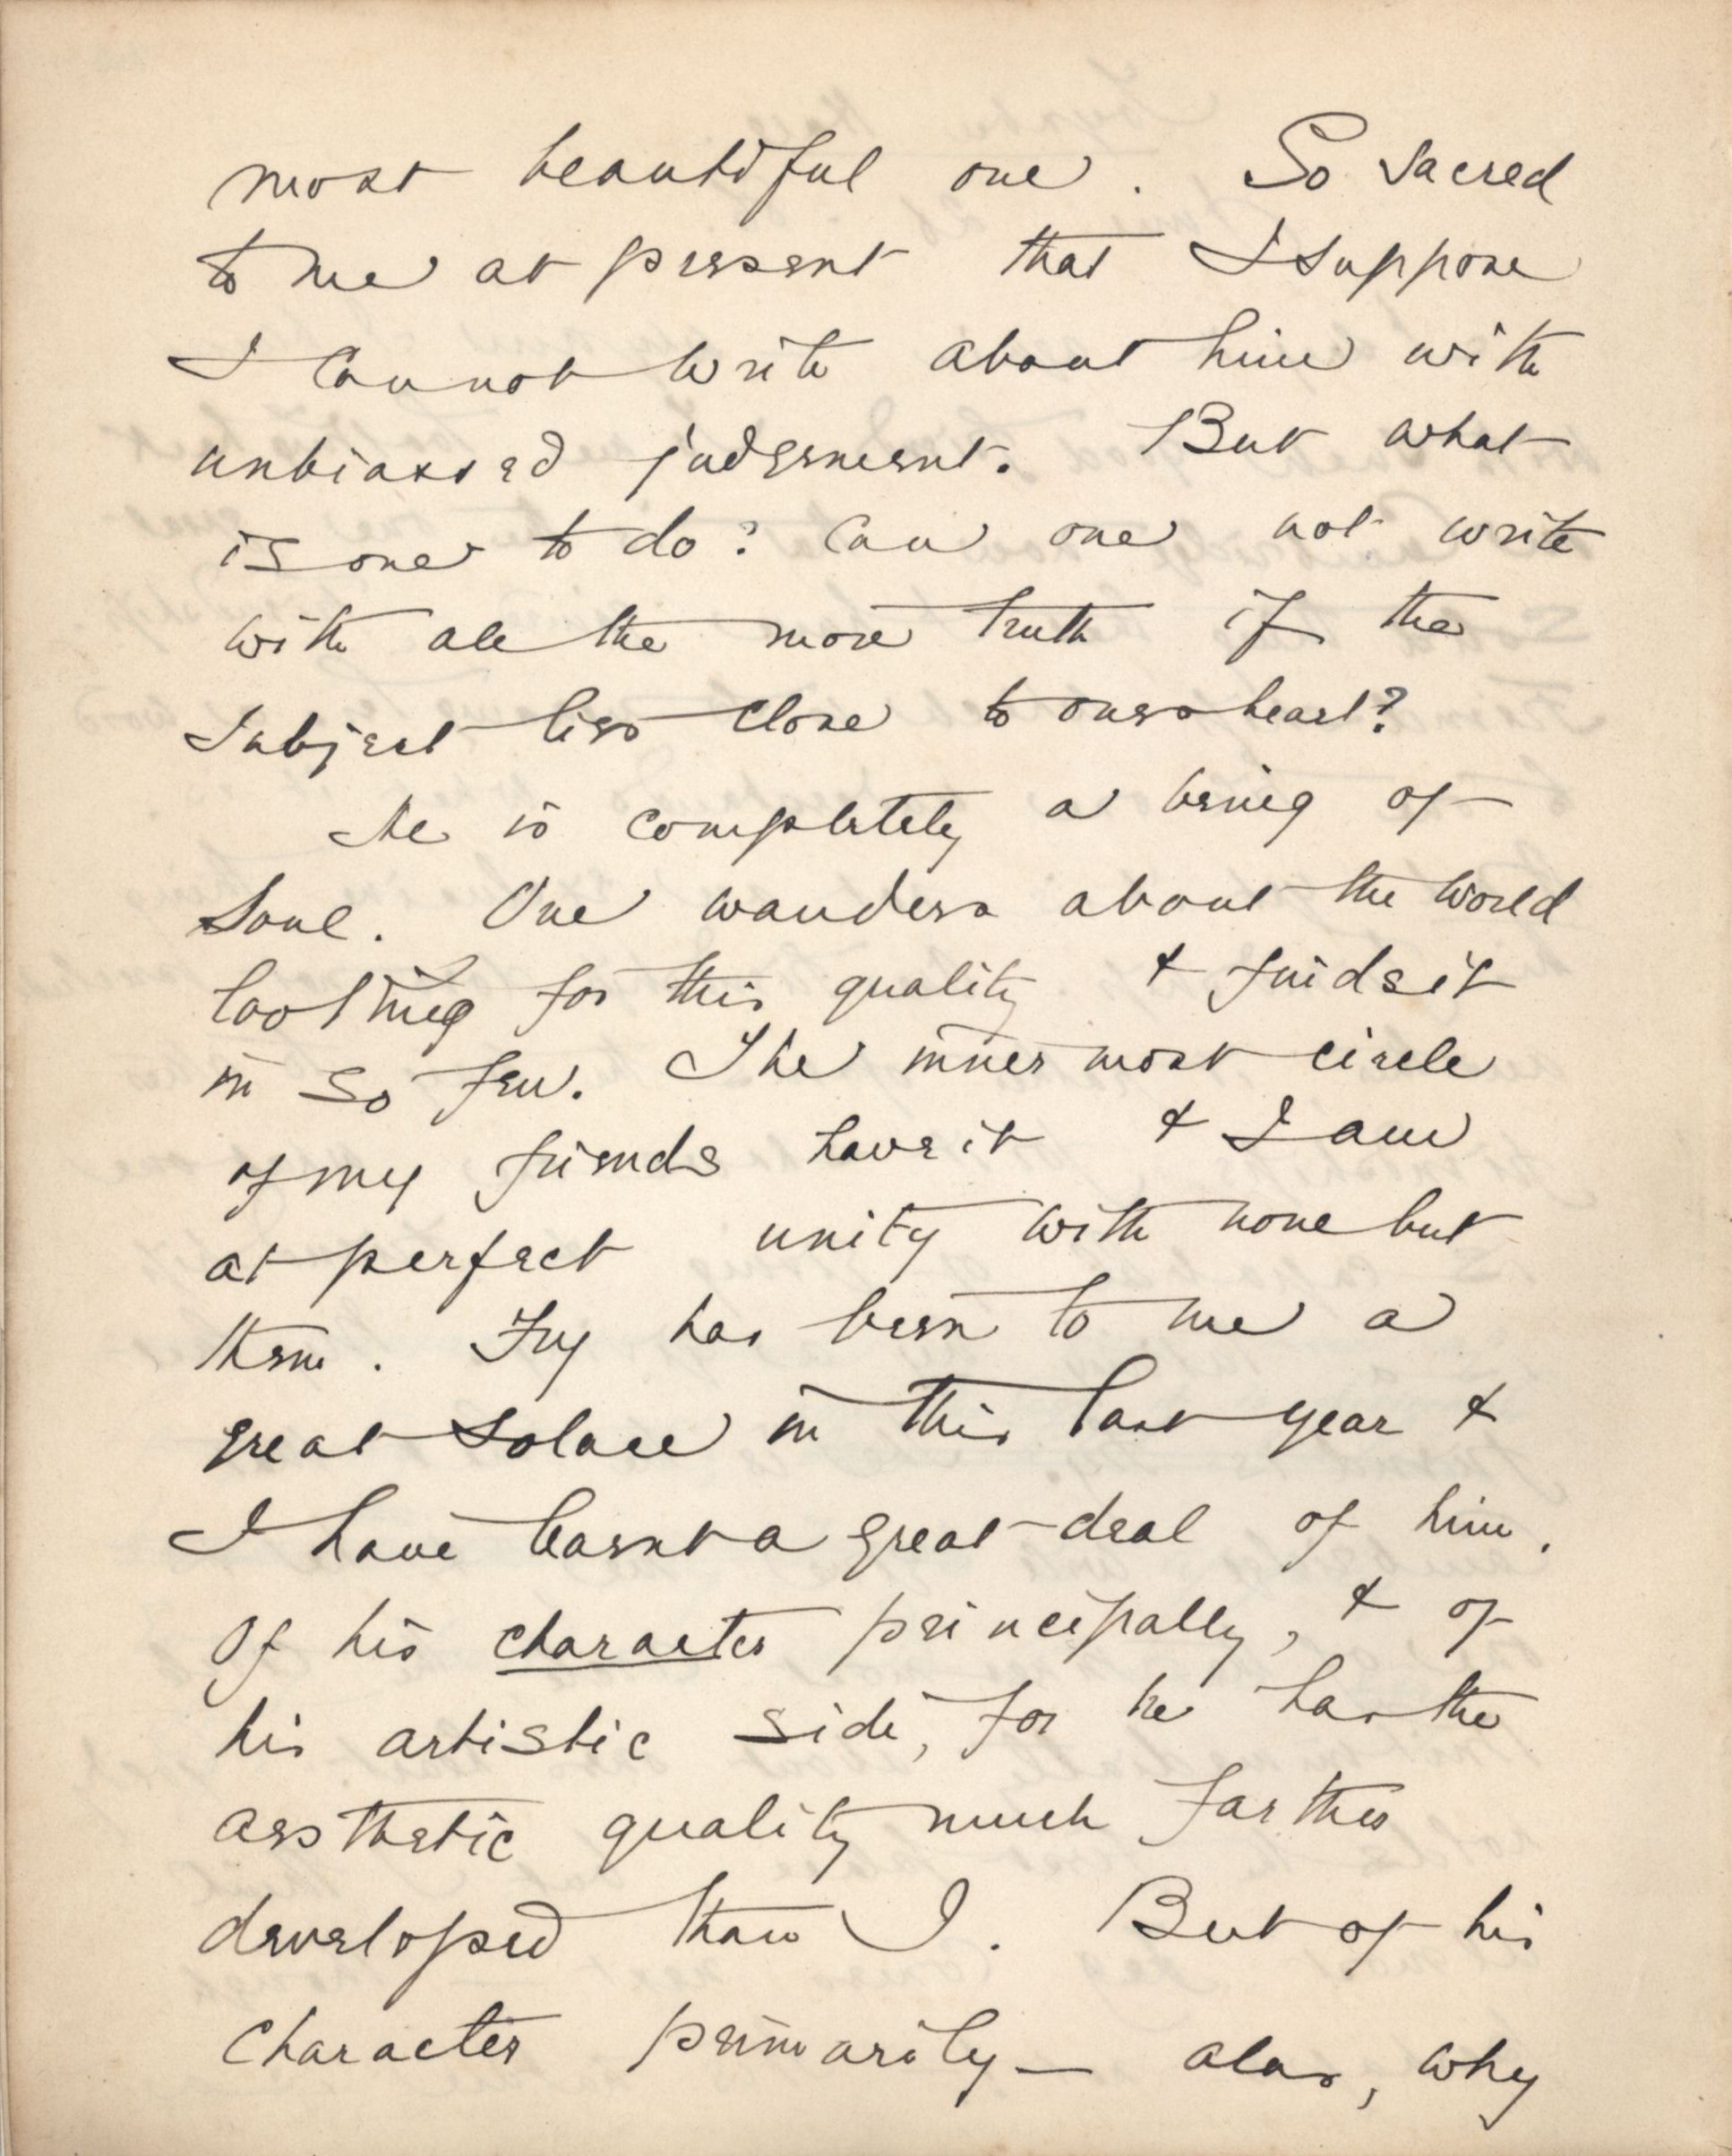 most beautiful one. So sacred
to me at present that I suppose
I cannot write about him with
unbiassed judgement. But what
is one to do? Can one not write
with all the more truth if the
subject lies close to ones heart?
He is completely a being of
soul. One wanders about the world
looking for this quality & finds it
in so few. The innermost circle
of my friends have it & I am
at perfect unity with none but
them. Fry has been to me a
great solace in this last year &
I have learnt a great deal of him.
Of his character principally, & of
his artistic side, for he has the
aesthetic quality much farther
developed than I. But of his
character primarily — alas, why